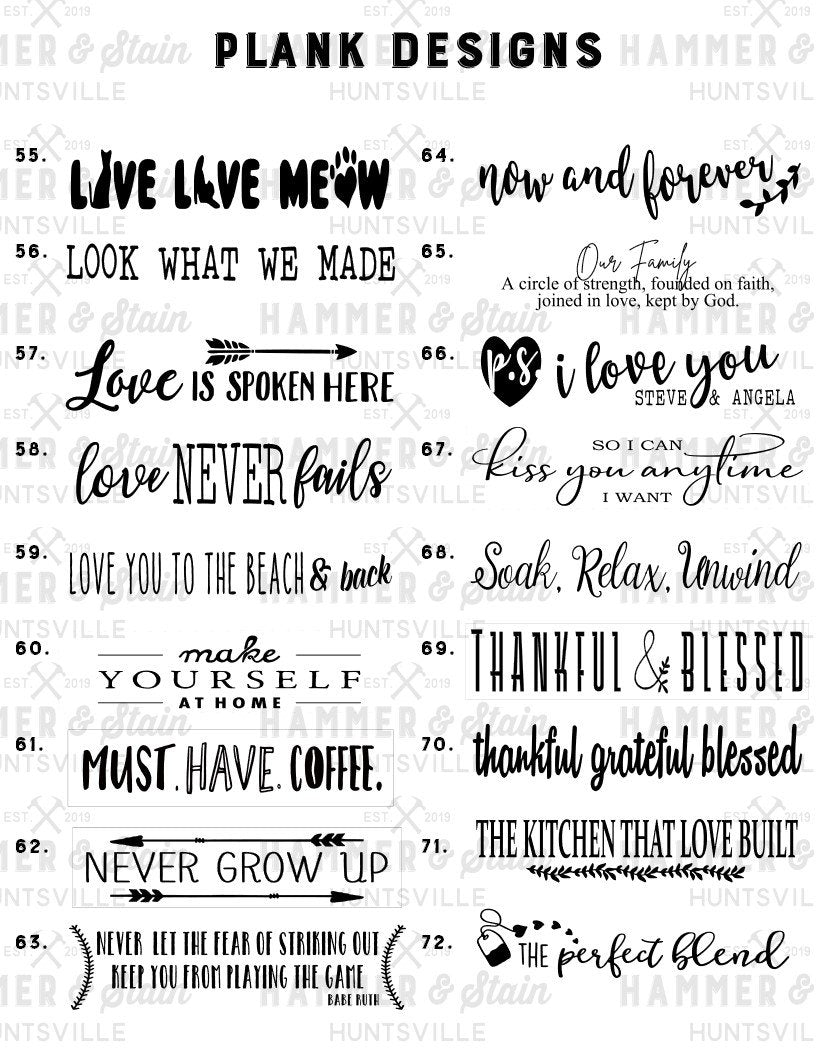 PLANK DESIGNS
55. LIVE LOVE MEOW
56. LOOK WHAT WE MADE
57. Love IS SPOKEN HERE
58. love NEVER fails
59. LOVE YOU TO THE BEACH & back
60. make
YOURSELF
AT HOME
61. MUST. HAVE. COFFEE.
62. NEVER GROW UP
63. NEVER LET THE FEAR OF STRIKING OUT
KEEP YOU FROM PLAYING THE GAME
BABE RUTH
64. now and forever
65. Our Family
A circle of strength, founded on faith,
joined in love, kept by God.
66. p.s i love you
STEVE & ANGELA
67. SO I CAN
kiss you anytime
I WANT
68. Soak, Relax, Unwind
69. THANKFUL & BLESSED
70. thankful grateful blessed
71. THE KITCHEN THAT LOVE BUILT
72. THE perfect blend
EST. 2019
HAMMER & Stain
HUNTSVILLE